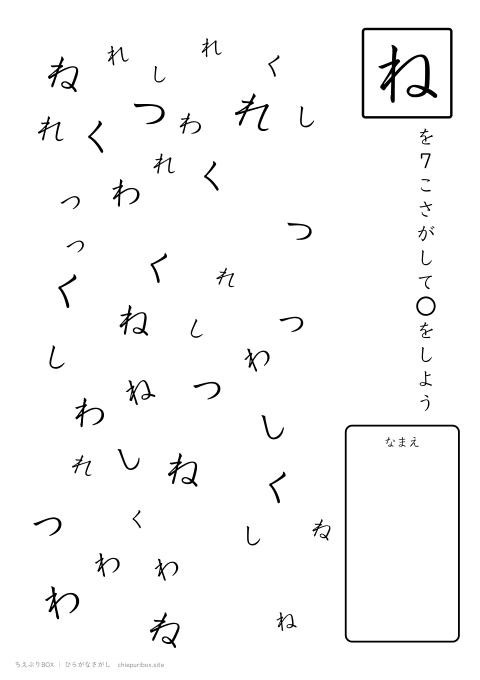 ね
を7こさがして○をしよう
なまえ
れ
れ
し
く
ね
つ
れ
し
れ
く
わ
れ
く
わ
つ
つ
つ
く
れ
く
ね
し
つ
し
わ
ね
つ
わ
し
れ
し
ね
く
つ
く
し
ね
わ
わ
わ
ね
ね
ちえぷりBOX | ひらがなさがし chiepuribox.site